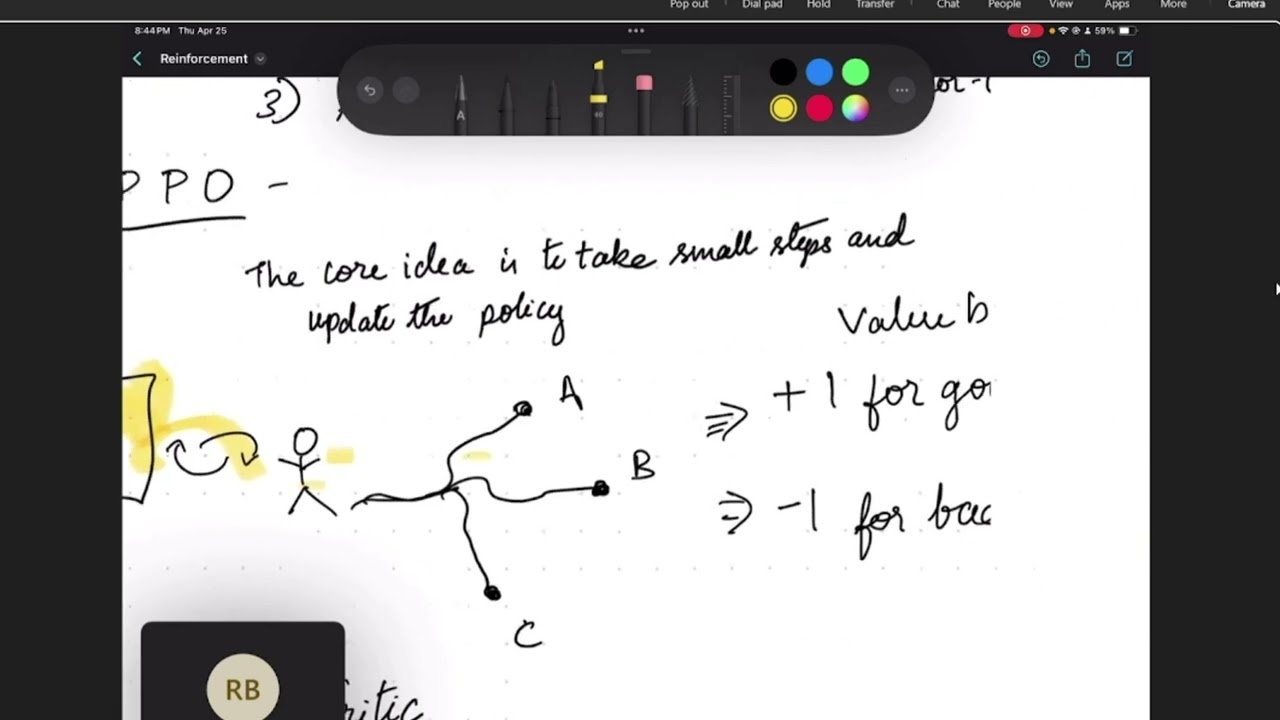 Pop out Dial pad Hold Transfer Chat People View Apps More Camera
8:44PM Thu Apr 25
59%
Reinforcement
A
3)
or -1
PPO -
The core idea is to take small steps and
update the policy
Value b
A
+1 for go
B
-1 for bac
C
RB
ritic